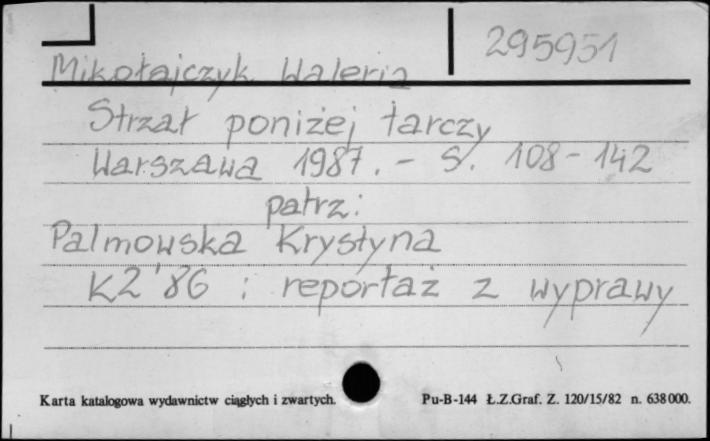 295951
Mikołajczyk Waleria
Strzał poniżej tarczy
Warszawa 1987. - S. 108-142
patrz:
Palmowska Krystyna
K2 '86 : reportaż z wyprawy
Karta katalogowa wydawnictw ciągłych i zwartych. Pu-B-144 Ł.Z.Graf. Z. 120/15/82 n. 638000.